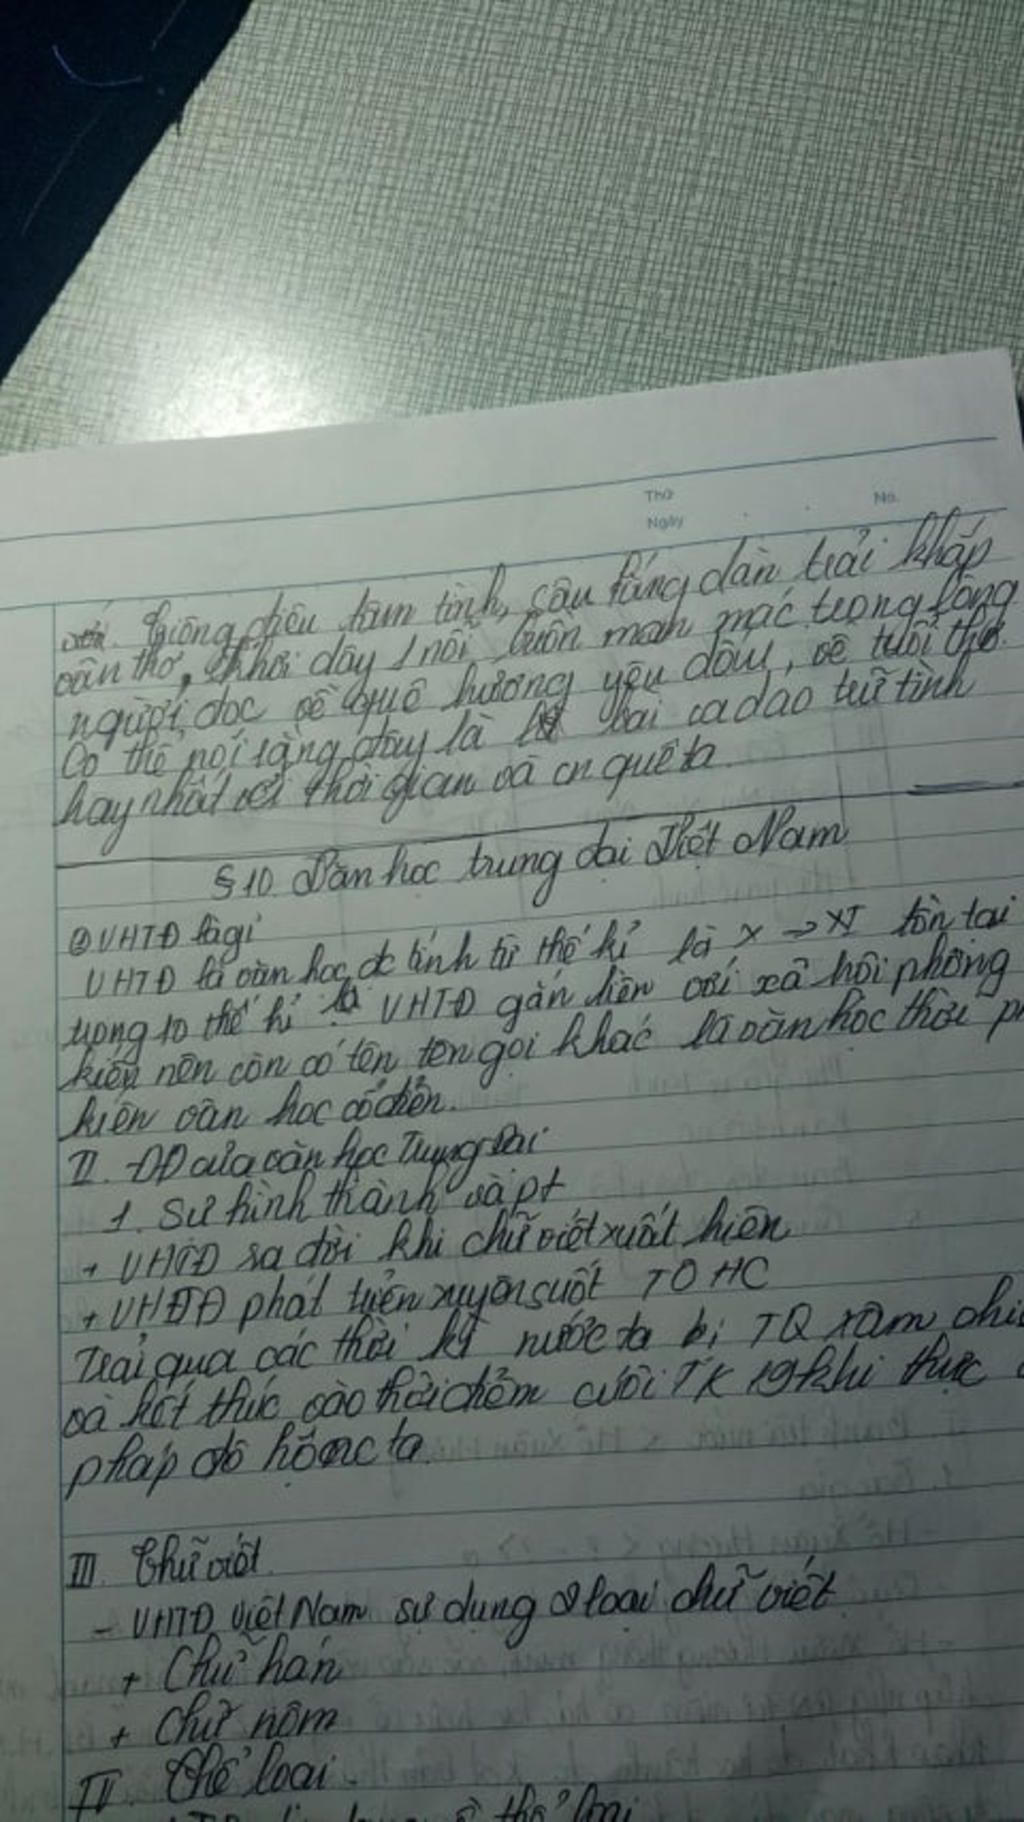 Thứ
Ngày
No.
với. Giọng điệu tâm tình, câu dàn trải khắp
văn thơ, khơi dậy 1 nỗi buồn man mác trong lòng
người đọc về quê hương yêu dấu, về tuổi thơ.
Có thể nói rằng đây là bài ca dao trữ tình
hay nhất với thời gian và cn quê ta.
§10. Văn học trung đại Việt Nam
VHTĐ là gì
VHTĐ là văn học đc tính từ thế kỉ là X → XI tồn tại
trong 10 thế kỉ là VHTĐ gắn liền với xã hội phong
kiến nên còn có tên tên gọi khác là văn học thời ph
kiến văn học cổ điển.
II. ĐĐ của văn học Trung Đại
1. Sự hình thành và pt
+ VHTĐ ra đời khi chữ viết xuất hiện
+ VHTĐ phát triển xuyên suốt TO HC
Trải qua các thời kỳ nước ta bị TQ xâm chi
và kết thúc vào thời điểm cuối TK 19 khi thực
pháp đô hộ nc ta.
III. Chữ viết.
- VHTĐ Việt Nam sử dụng 2 loại chữ viết
+ Chữ hán
+ Chữ nôm
IV. Thể loại.
thể loại